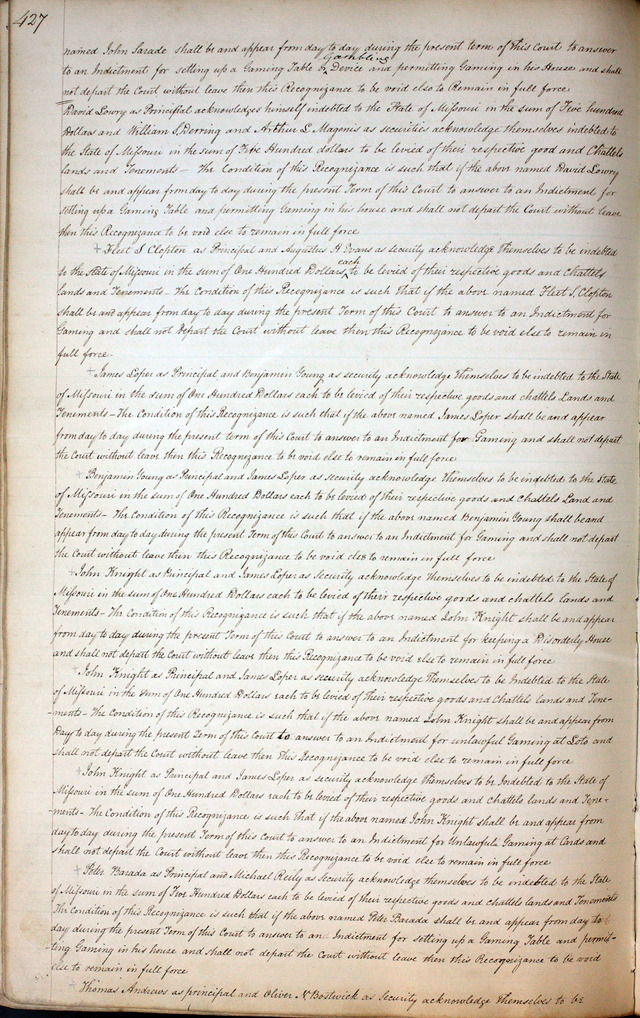 427
named John Sarade shall be and appear from day to day during the present term of this Court to answer
Gambling
to an Indictment for setting up a Gaming Table or Device and permitting Gaming in his House and shall
not depart the Court without leave then this Recognizance to be void else to Remain in full force
David Lowry as Principal acknowledges himself indebted to the State of Missouri in the sum of Five hundred
Dollars and William S. Derring and Arthur L. Magenis as securities acknowledge themselves indebted to
the State of Missouri in the sum of Five Hundred dollars to be levied of their respective good and Chattels
lands and Tenements - The Condition of this Recognizance is such that if the above named David Lowry
shall be and appear from day to day during the present Term of this Court to answer to an Indictment for
setting up a Gaming Table and permitting Gaming in his house and shall not depart the Court without leave
then this Recognizance to be void else to remain in full force
+ Fleet S Clopton as Principal and Augustus H Evans as security acknowledge themselves to be indebted
each
to the State of Missouri in the sum of One Hundred Dollars to be levied of their respective goods and Chattels
lands and Tenements - The Condition of this Recognizance is such that if the above named Fleet S. Clopton
shall be and appear from day to day during the present Term of this Court to answer to an Indictment for
Gaming and shall not depart the Court without leave then this Recognizance to be void else to remain in
full force.
+ James Loper as Principal and Benjamin Young as security acknowledge themselves to be indebted to the State
of Missouri in the sum of One Hundred Dollars each to be levied of their respective goods and chattels Lands and
Tenements - The Condition of this Recognizance is such that if the above named James Loper shall be and appear
from day to day during the present term of this Court to answer to an Indictment for Gaming and shall not depart
the Court without leave then this Recognizance to be void else to remain in full force
+ Benjamin Young as Principal and James Loper as security acknowledge themselves to be indebted to the State
of Missouri in the sum of One Hundred Dollars each to be levied of their respective goods and chattels Land and
Tenements - The Condition of this Recognizance is such that if the above named Benjamin Young shall be and
appear from day to day during the present Term of this Court to answer to an Indictment for Gaming and shall not depart
the Court without leave then this Recognizance to be void else to remain in full force
+ John Knight as Principal and James Loper as Security acknowledge themselves to be indebted to the State of
Missouri in the sum of One Hundred Dollars each to be levied of their respective goods and chattels lands and
Tenements - The Condition of this Recognizance is such that if the above named John Knight shall be and appear
from day to day during the present Term of this Court to answer to an Indictment for keeping a Disorderly House
and shall not depart the Court without leave then this Recognizance to be void else to remain in full force
+ John Knight as Principal and James Loper as security acknowledge themselves to be Indebted to the State
of Missouri in the sum of One Hundred Dollars each to be levied of their respective goods and Chattels lands and Tene-
ments - The Condition of this Recognizance is such that if the above named John Knight shall be and appear from
Day to day during the present Term of this Court to answer to an Indictment for unlawful Gaming at Loto and
shall not depart the Court without leave then this Recognizance to be void else to remain in full force
+ John Knight as Principal and James Loper as security acknowledge themselves to be Indebted to the State of
Missouri in the sum of One Hundred Dollars each to be levied of their respective goods and chattels lands and Tene-
ments - The Condition of this Recognizance is such that if the above named John Knight shall be and appear from
day to day during the present Term of this Court to answer to an Indictment for Unlawful Gaming at Cards and
shall not depart the Court without leave then this Recognizance to be void else to remain in full force
+ Peter Barada as Principal and Michael Reily as Security acknowledge themselves to be indebted to the State
of Missouri in the sum of Five Hundred Dollars each to be levied of their respective goods and chattels lands and Tenements
The Condition of this Recognizance is such that if the above named Peter Barada shall be and appear from day to
day during the present Term of this Court to answer to an Indictment for setting up a Gaming Table and permit-
ting Gaming in his house and shall not depart the Court without leave then this Recognizance to be void
else to remain in full force
+ Thomas Andrews as principal and Oliver N. Bostwick as Security acknowledge themselves to be